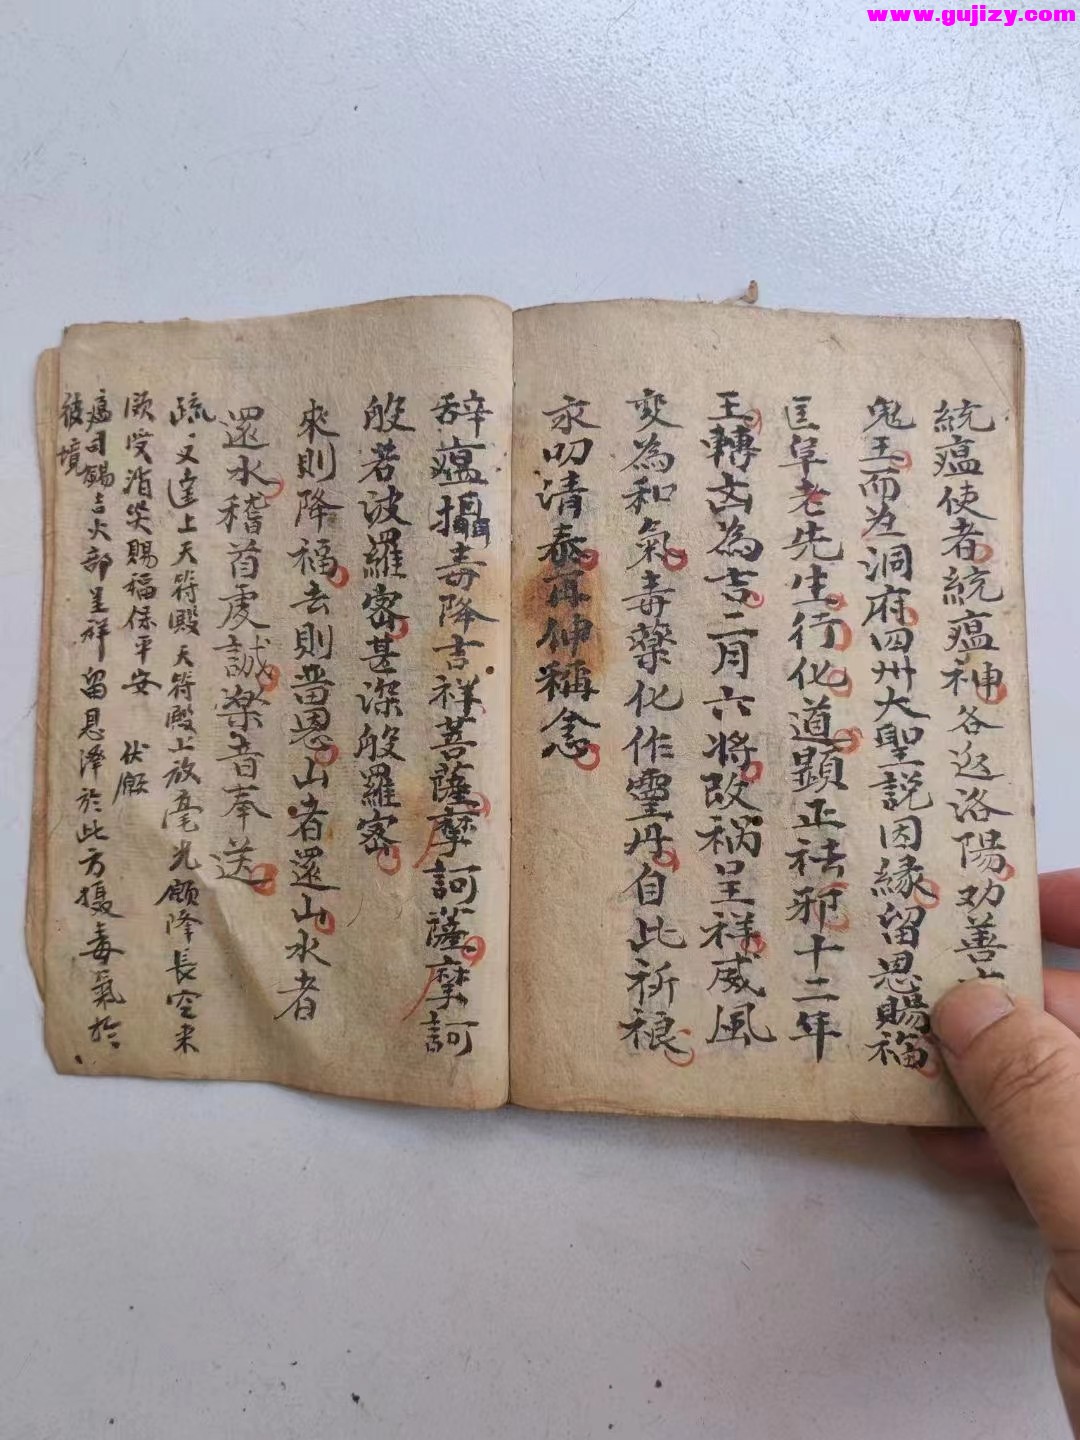 www.gujizy.com
統瘟使者統瘟神各返洛陽劝善
鬼王而为洞府四州大聖説因緣留恩賜福
匡阜老先生行化道顯正祛邪十二年
王轉凶為吉二月六将改禍呈祥威風
变為和氣毒藥化作靈丹自此祈禳
永叨清泰再伸稱念
辞瘟攝毒降吉祥菩薩摩訶薩摩訶
般若波羅密甚深般羅密
來則降福去則畨恩山者還山水者
還水稽首虔誠樂音奉送
疏文達上天符殿天符殿上放毫光願降長空来
歆受消災賜福保平安 伏願
瘟司賜吉火部呈祥留恩澤於此方攝毒氣於
彼境